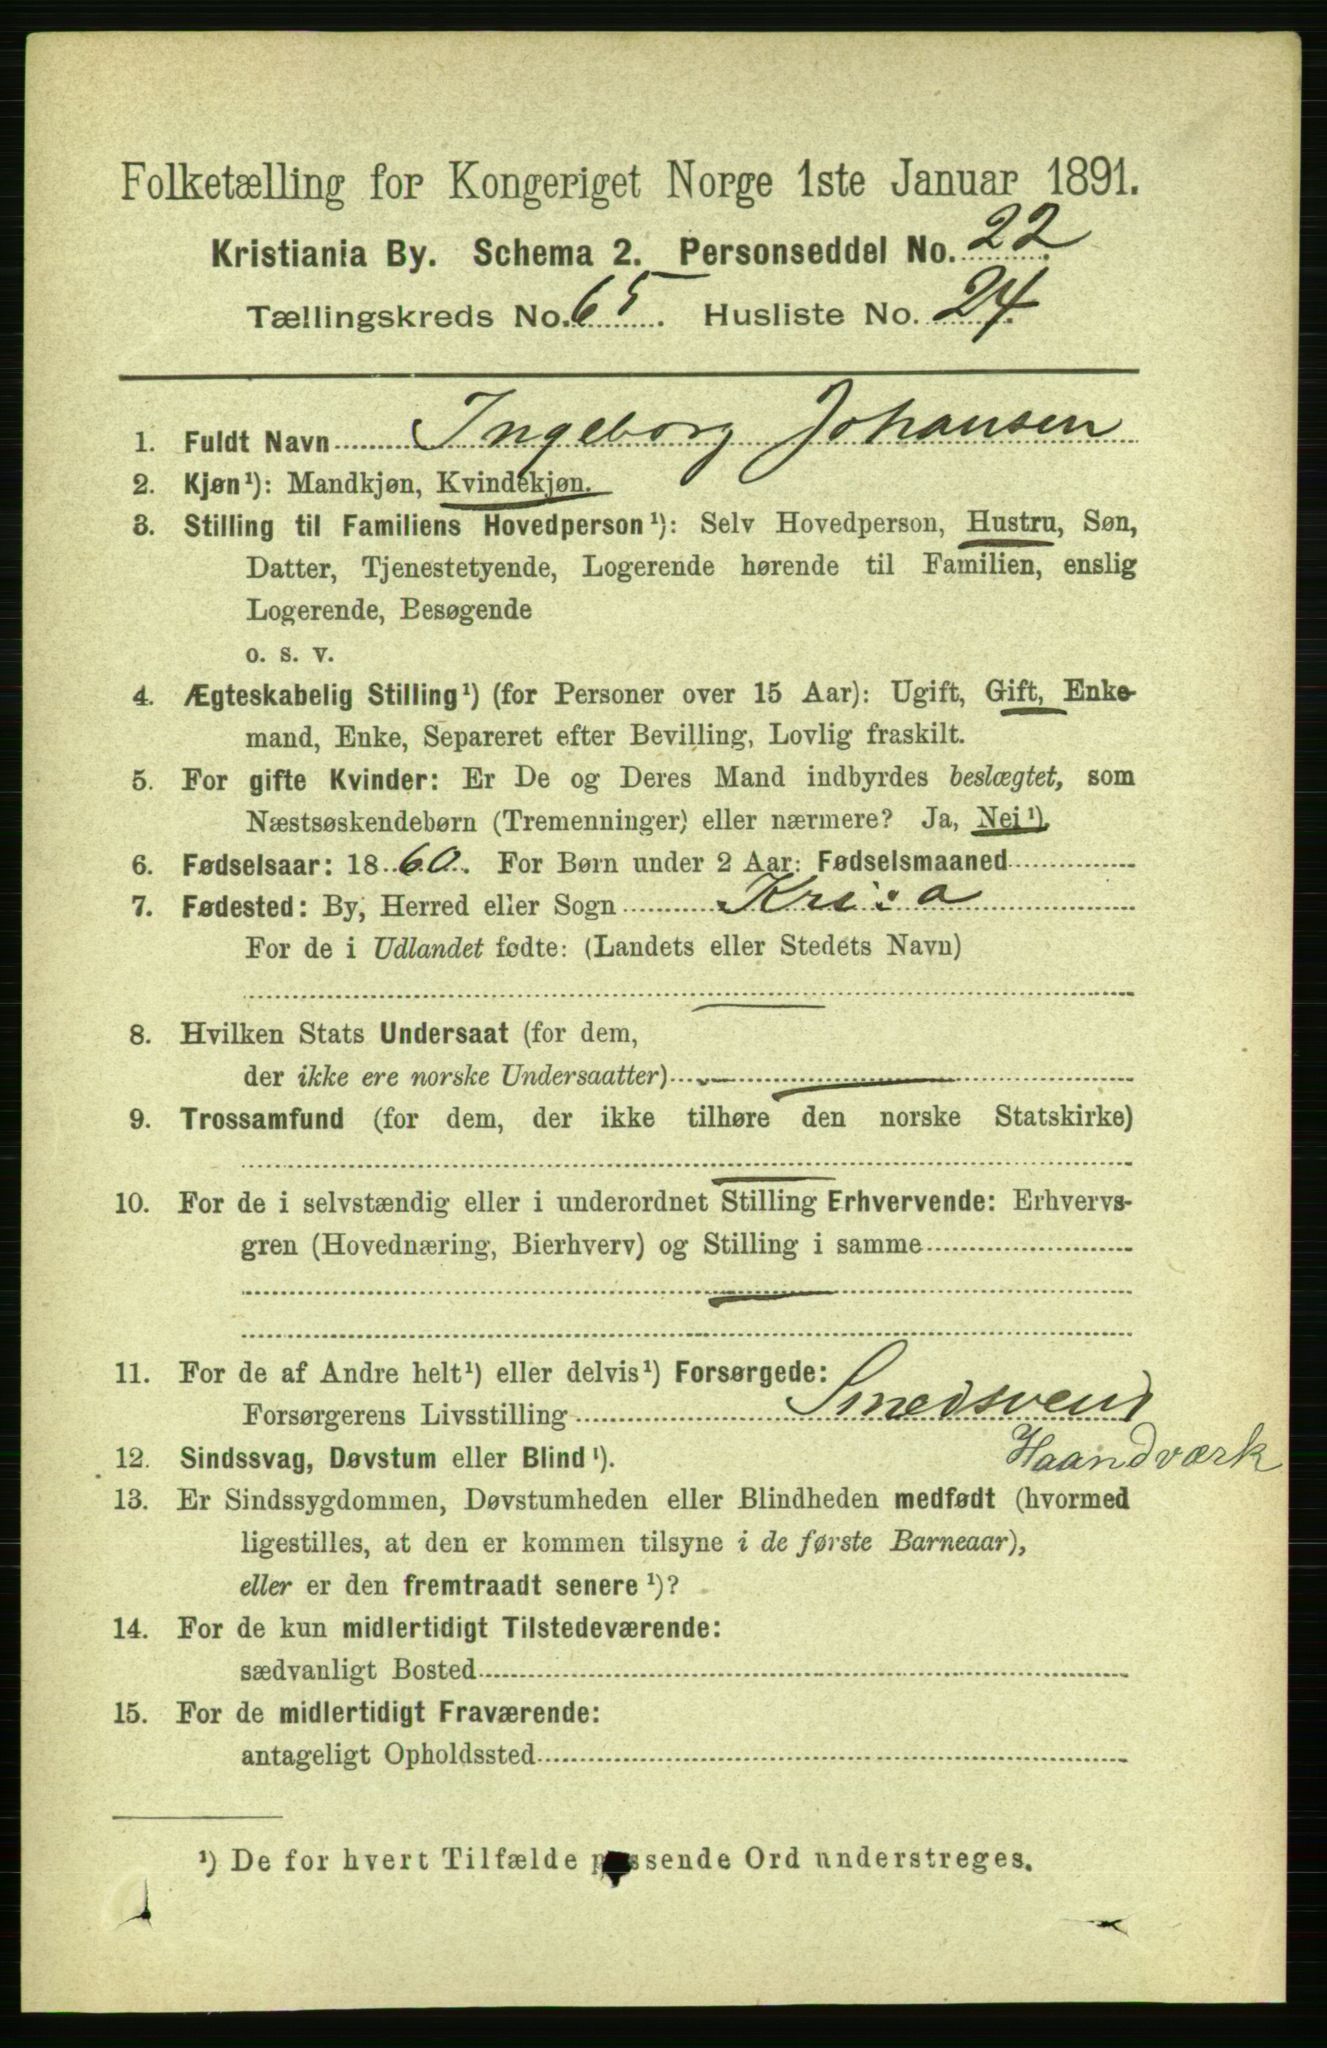 Folketælling for Kongeriget Norge 1ste Januar 1891.
Kristiania By. Schema 2. Personseddel No. 22
Tællingskreds No. 65. Husliste No. 24.
1. Fuldt Navn Ingeborg Johansen
2. Kjøn¹): Mandkjøn, Kvindekjøn.
3. Stilling til Familiens Hovedperson¹): Selv Hovedperson, Hustru, Søn,
Datter, Tjenestetyende, Logerende hørende til Familien, enslig
Logerende, Besøgende
o. s. v.
4. Ægteskabelig Stilling¹) (for Personer over 15 Aar): Ugift, Gift, Enke-
mand, Enke, Separeret efter Bevilling, Lovlig fraskilt.
5. For gifte Kvinder: Er De og Deres Mand indbyrdes beslægtet, som
Næstsøskendebørn (Tremenninger) eller nærmere? Ja, Nei¹).
6. Fødselsaar: 1860. For Børn under 2 Aar: Fødselsmaaned
7. Fødested: By, Herred eller Sogn Kri:a
For de i Udlandet fødte: (Landets eller Stedets Navn)
8. Hvilken Stats Undersaat (for dem,
der ikke ere norske Undersaatter)
9. Trossamfund (for dem, der ikke tilhøre den norske Statskirke)
10. For de i selvstændig eller i underordnet Stilling Erhvervende: Erhvervs-
gren (Hovednæring, Bierhverv) og Stilling i samme
11. For de af Andre helt¹) eller delvis¹) Forsørgede:
Forsørgerens Livsstilling Smedsvend
Haandværk
12. Sindssvag, Døvstum eller Blind¹).
13. Er Sindssygdommen, Døvstumheden eller Blindheden medfødt (hvormed
ligestilles, at den er kommen tilsyne i de første Barneaar),
eller er den fremtraadt senere¹)?
14. For de kun midlertidigt Tilstedeværende:
sædvanligt Bosted
15. For de midlertidigt Fraværende:
antageligt Opholdssted
¹) De for hvert Tilfælde passende Ord understreges.